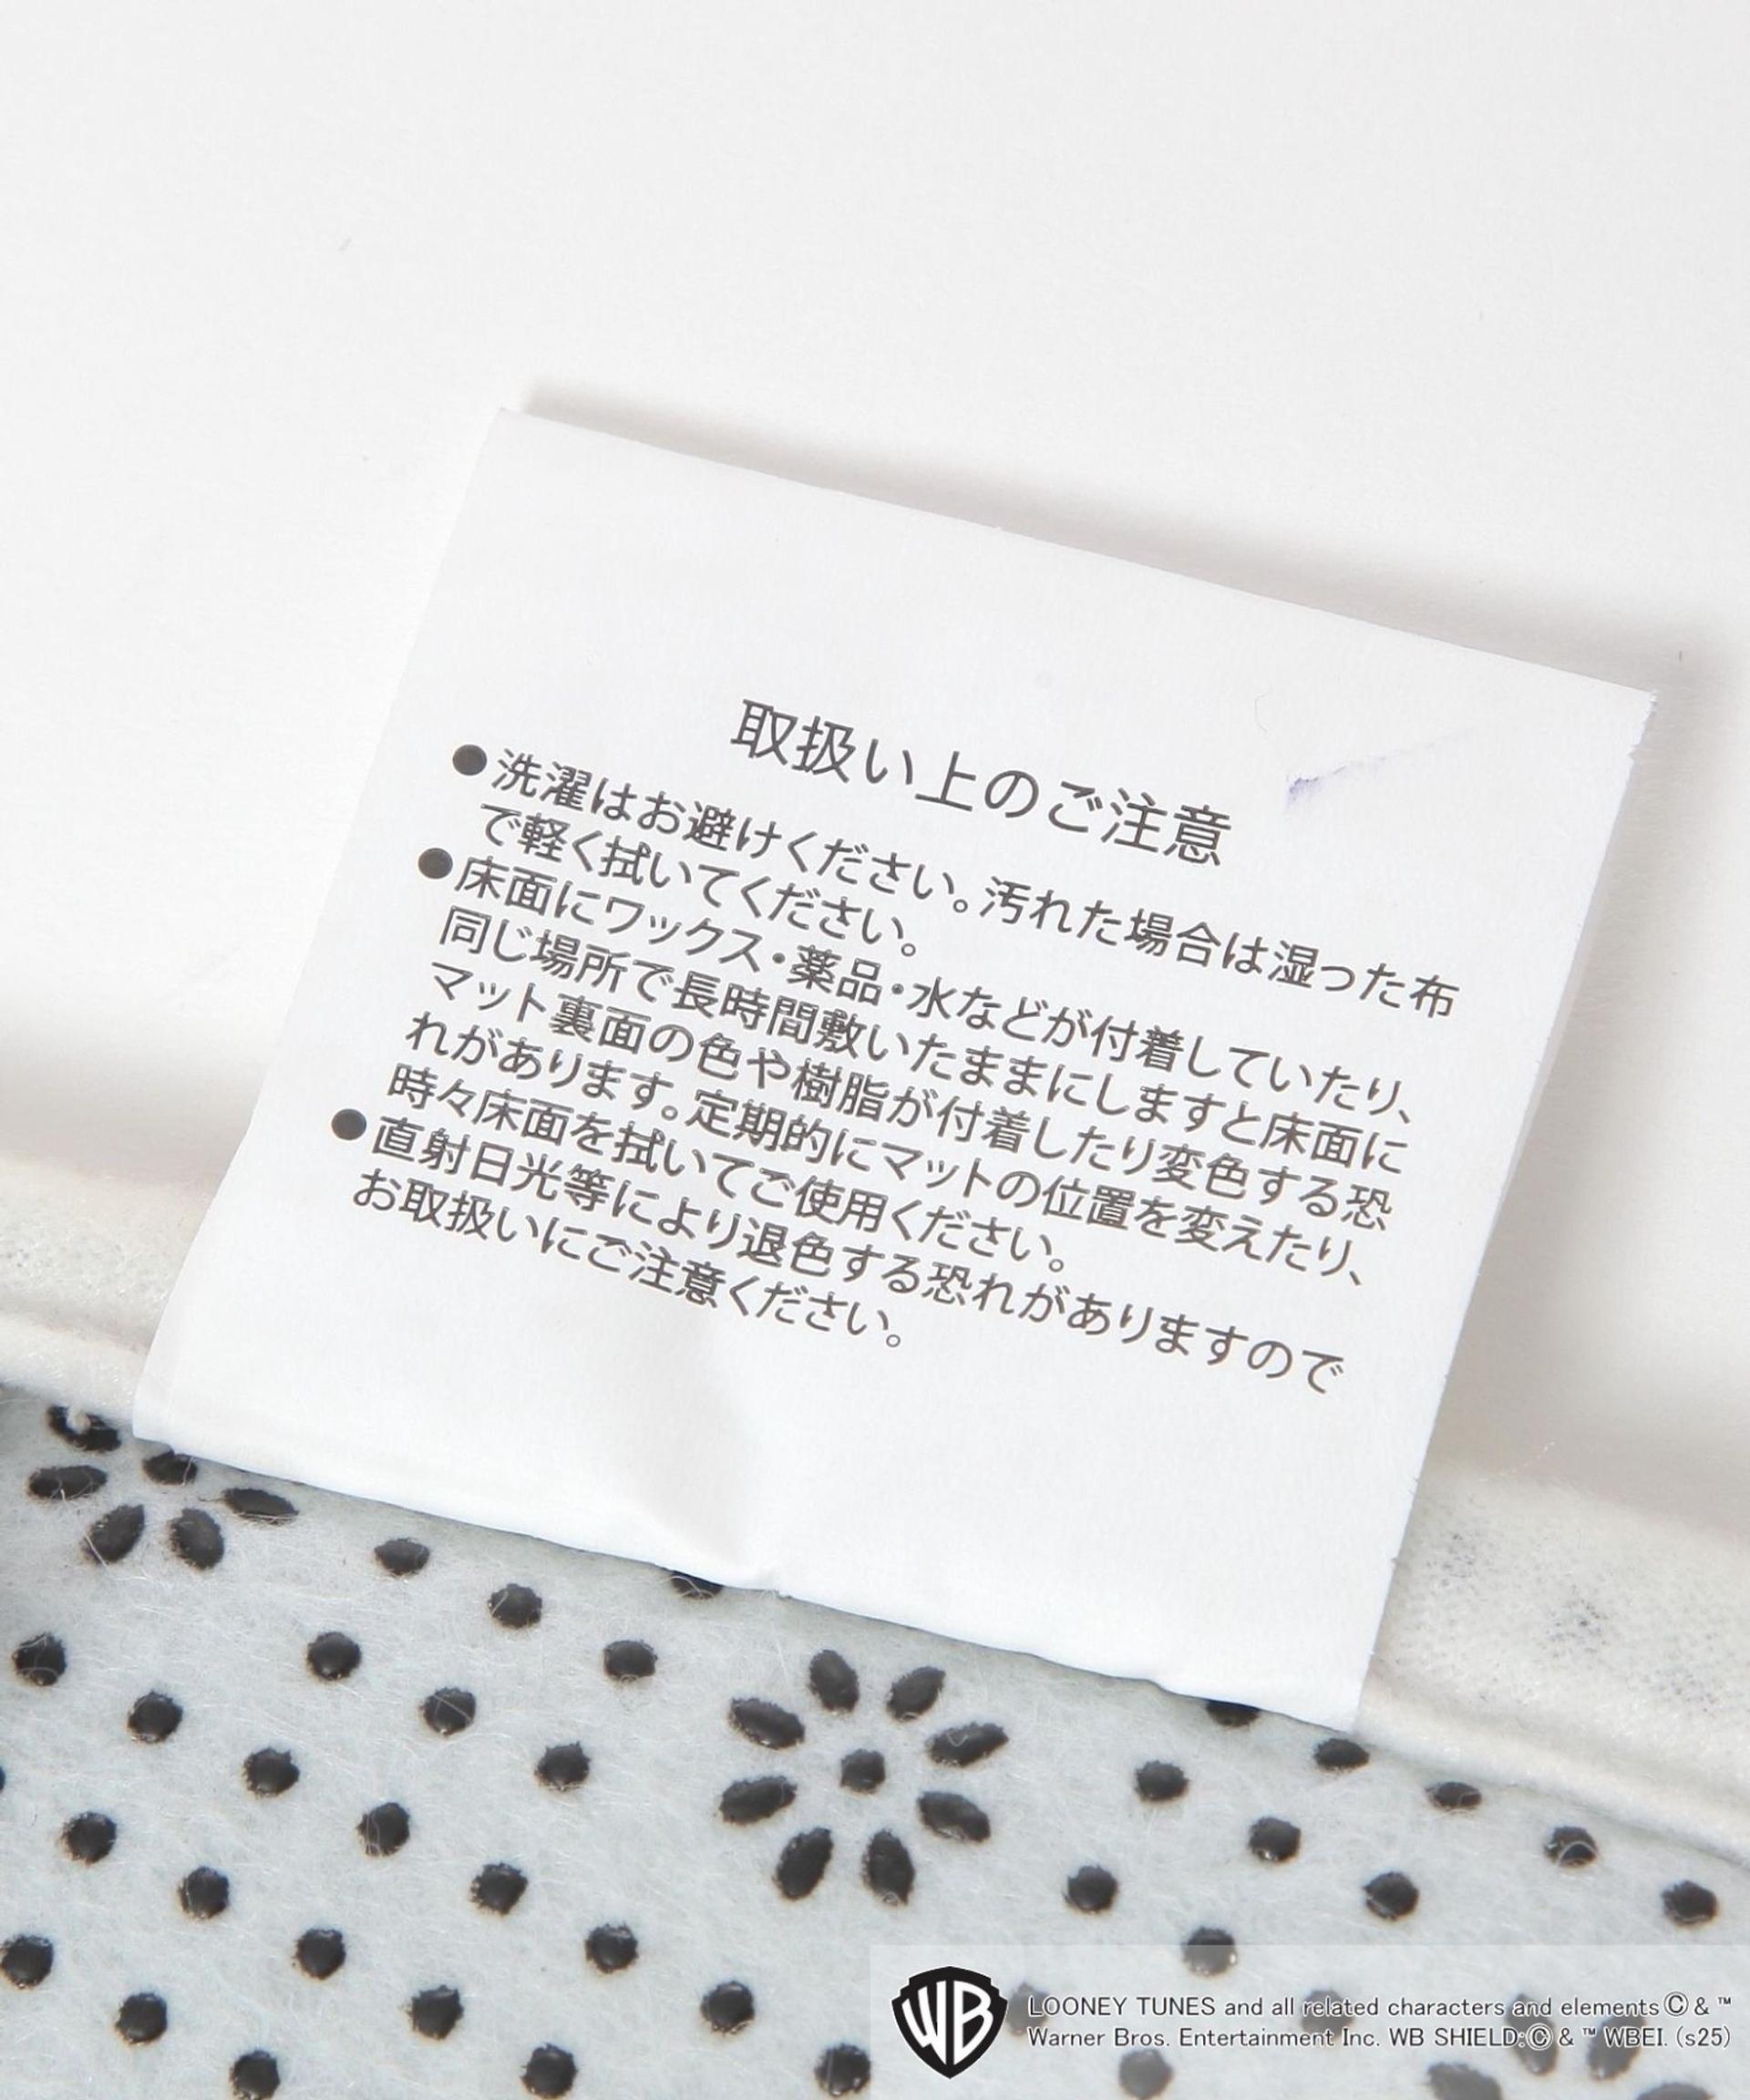 取扱い上のご注意
●洗濯はお避けください。汚れた場合は湿った布
で軽く拭いてください。
●床面にワックス・薬品・水などが付着していたり、
同じ場所で長時間敷いたままにしますと床面に
マット裏面の色や樹脂が付着したり変色する恐
れがあります。定期的にマットの位置を変えたり、
時々床面を拭いてご使用ください。
●直射日光等により退色する恐れがありますので
お取扱いにご注意ください。
WB
LOONEY TUNES and all related characters and elements © & ™
Warner Bros. Entertainment Inc. WB SHIELD: © & ™ WBEI. (s25)